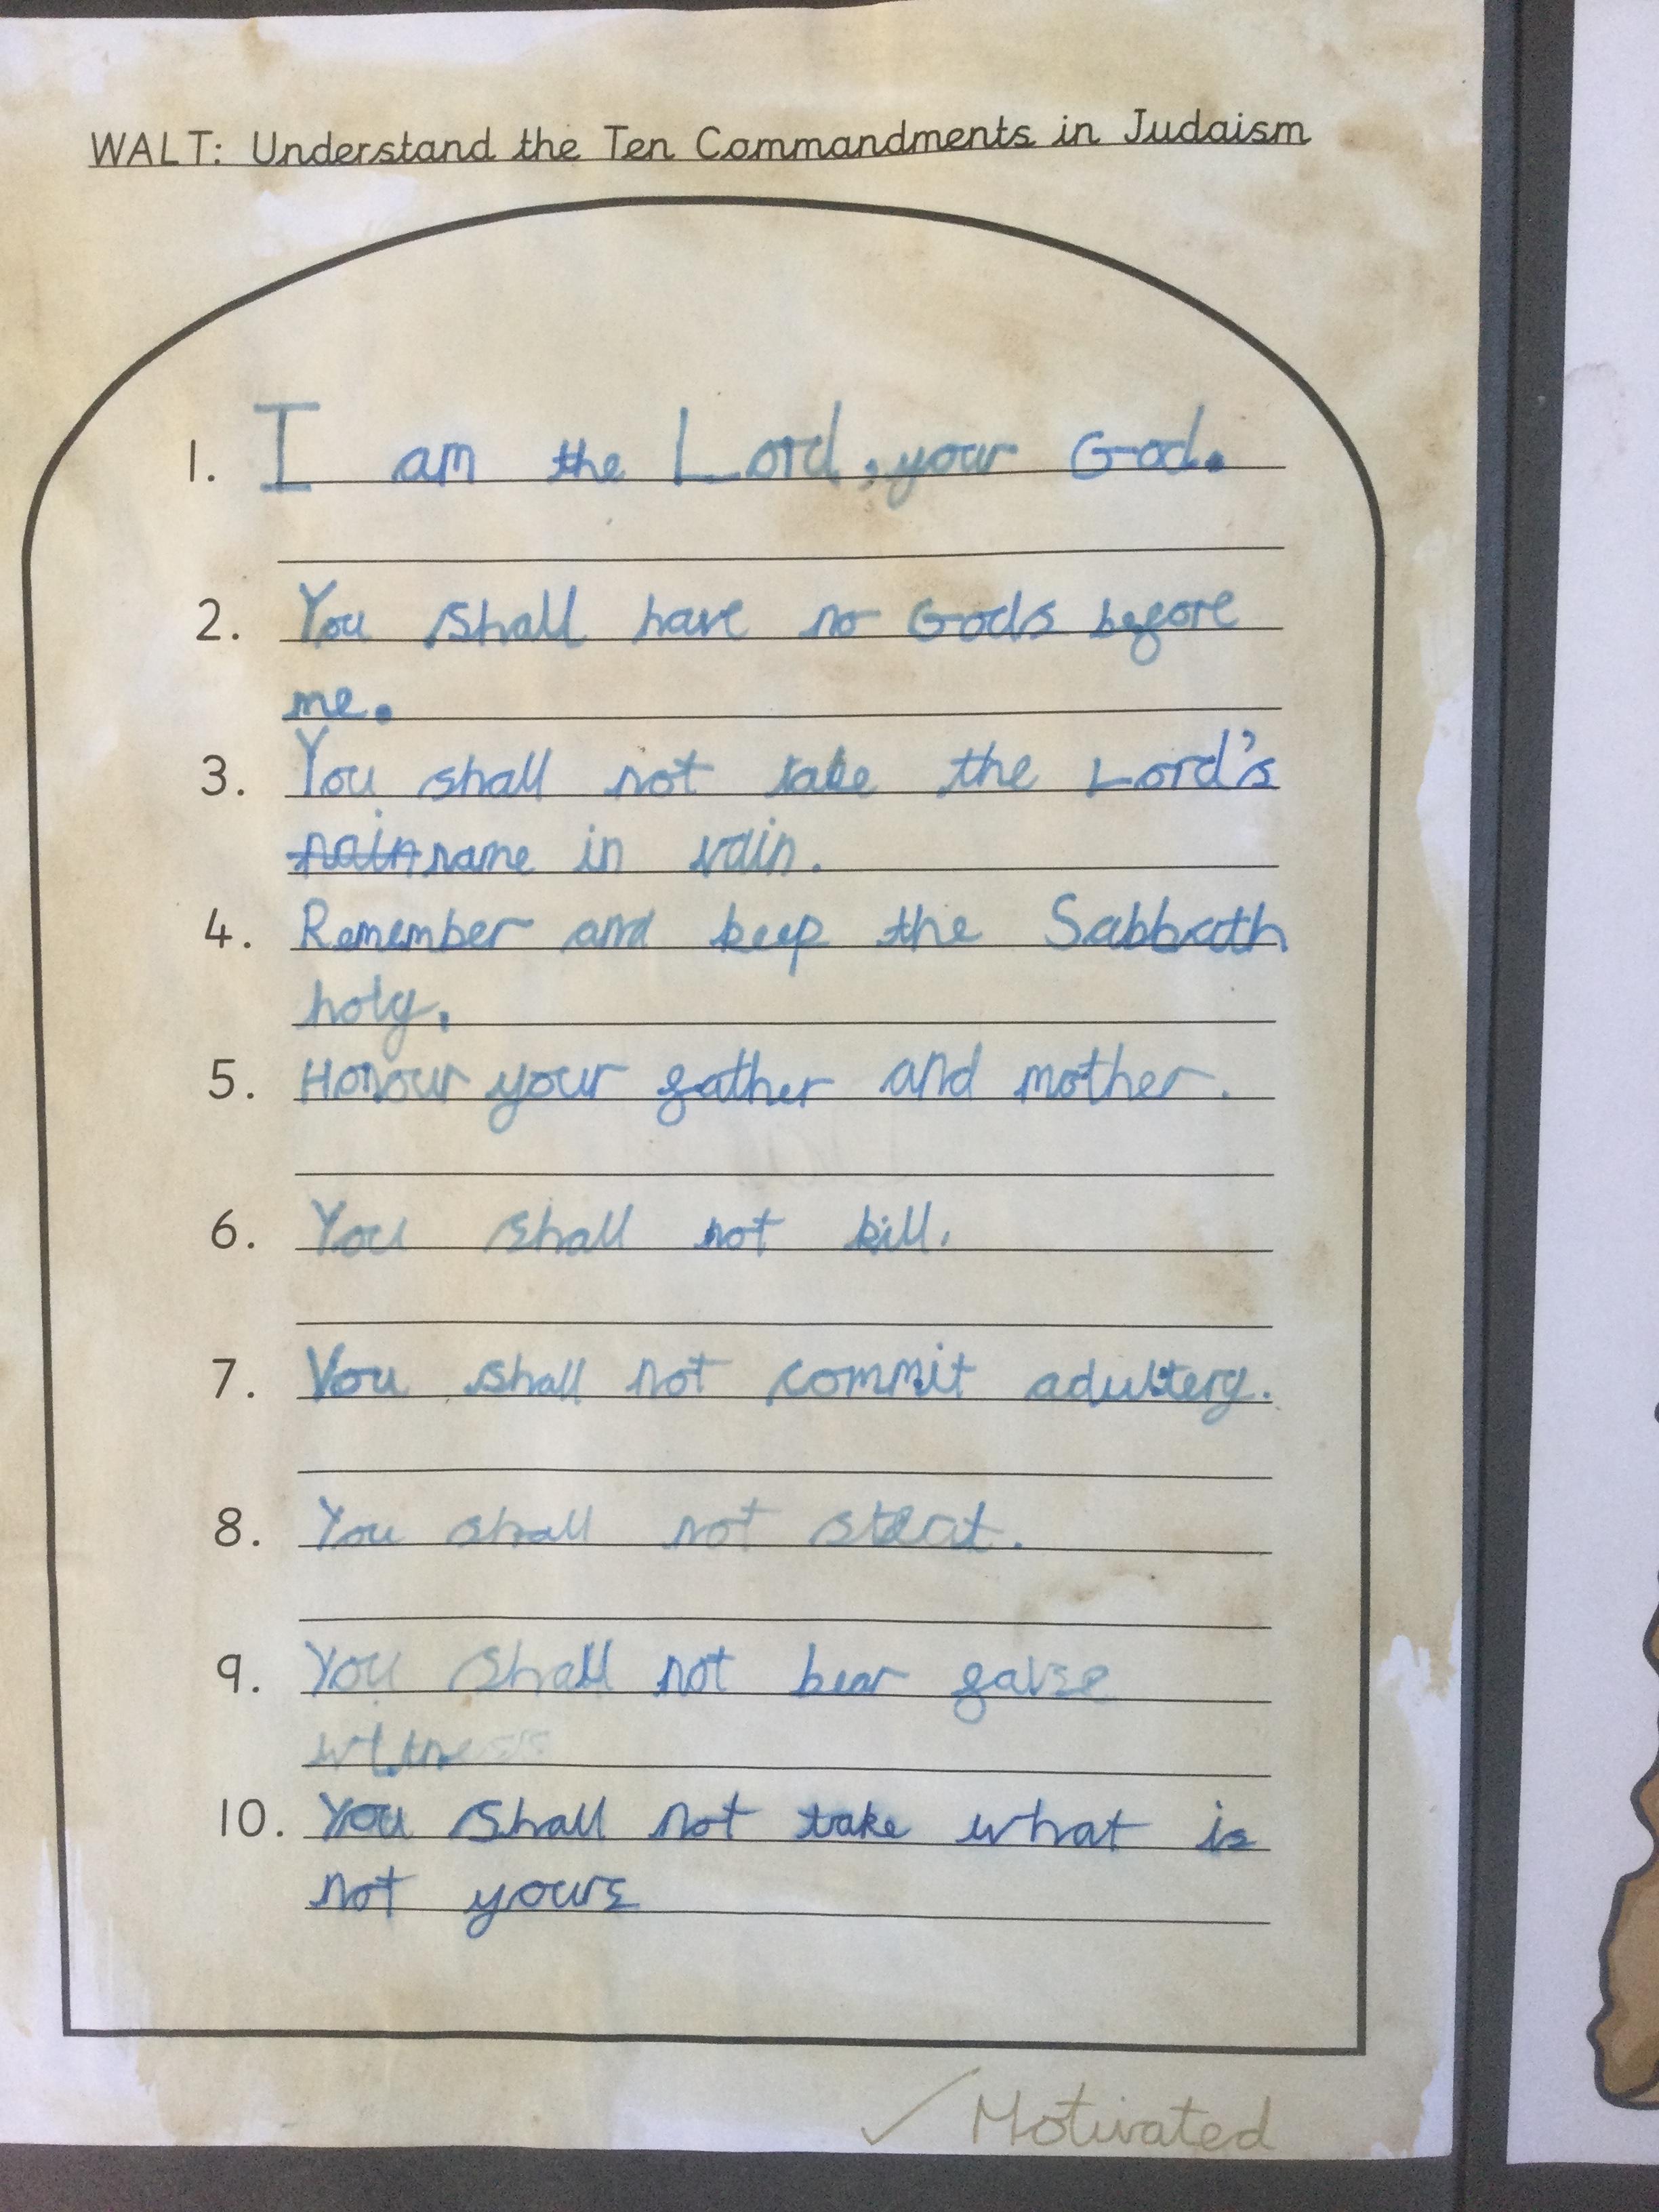 WALT: Understand the Ten Commandments in Judaism
1. I am the Lord, your God.
2. You shall have no Gods before
me.
3. You shall not take the Lord's
nain name in vain.
4. Remember and keep the Sabbath
holy.
5. Honour your father and mother.
6. You shall not kill.
7. You shall not commit adultery.
8. You shall not steal.
9. You shall not bear false
witness
10. You shall not take what is
not yours
✓ Motivated